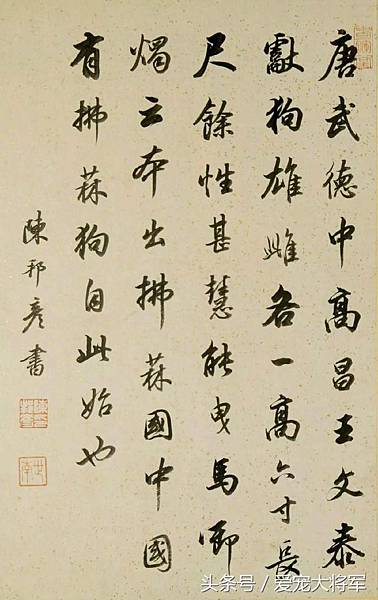 唐武德中高昌王文泰
獻狗雄雌各一高六寸長
尺餘性甚慧能曳馬啣
燭云本出拂菻國中國
有拂菻狗自此始也
陳邦彥書
头条号 / 爱宠大将军